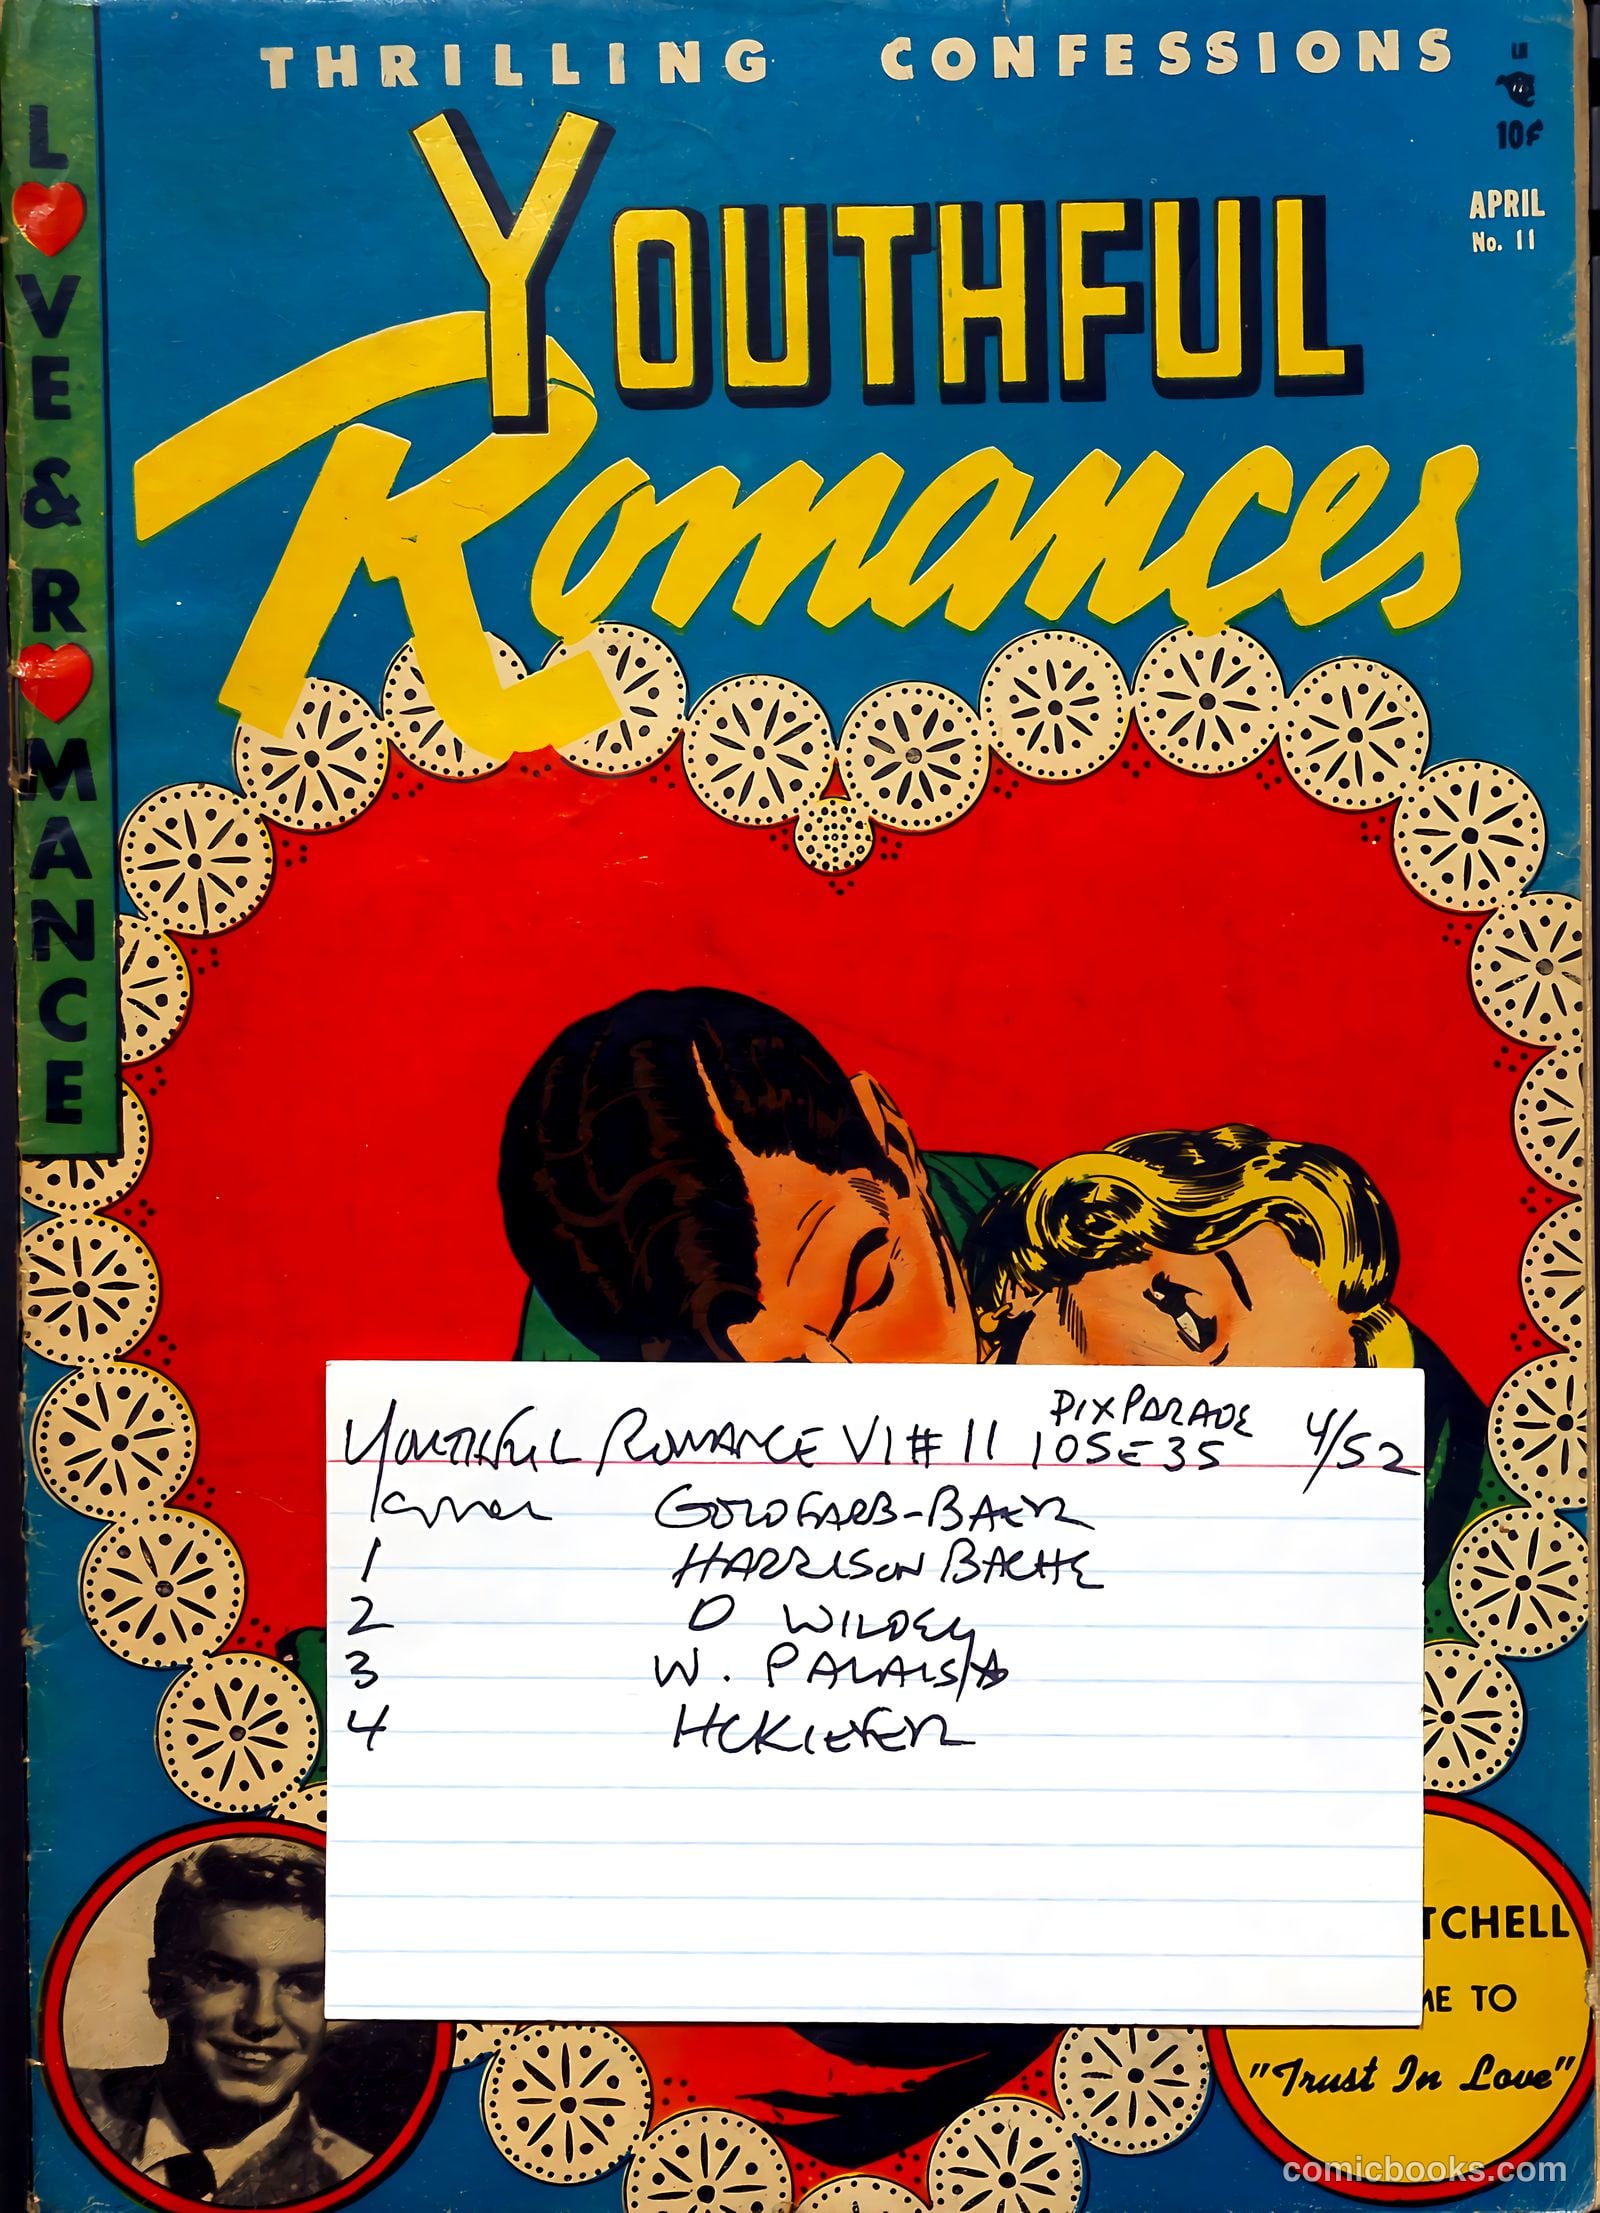 THRILLING CONFESSIONS
10¢
APRIL
No. 11
YOUTHFUL
Romances
LOVE & ROMANCE
YOUTHFUL ROMANCE V1 # 11 PIX PARADE 105E35 4/52
GOLDFARB-BAER
1 HARRISON BACHE
2 D WILDEY
3 W. PALAIS/A
4 HCKIEFER
TCHELL
ME TO
"Trust In Love"
comicbooks.com